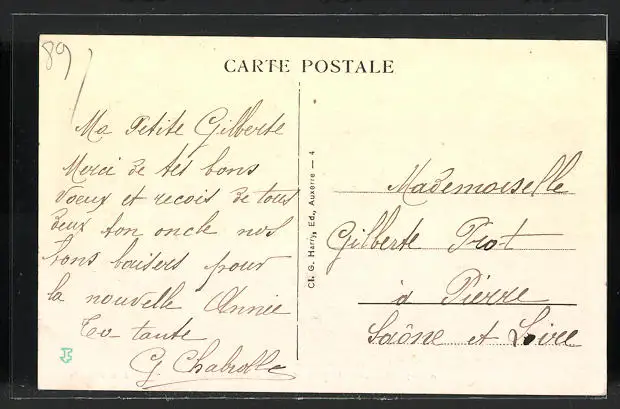 89
CARTE POSTALE
Ma Petite Gilberte
Merci de tes bons
voeux et recois de tous
deux ton oncle nos
bons baisers pour
la nouvelle Année
Ta tante
G. Chabrolle
Cl. G. Harry, Ed., Auxerre — 4
Mademoiselle
Gilberte Prot
à Pierre
Saône et Loire